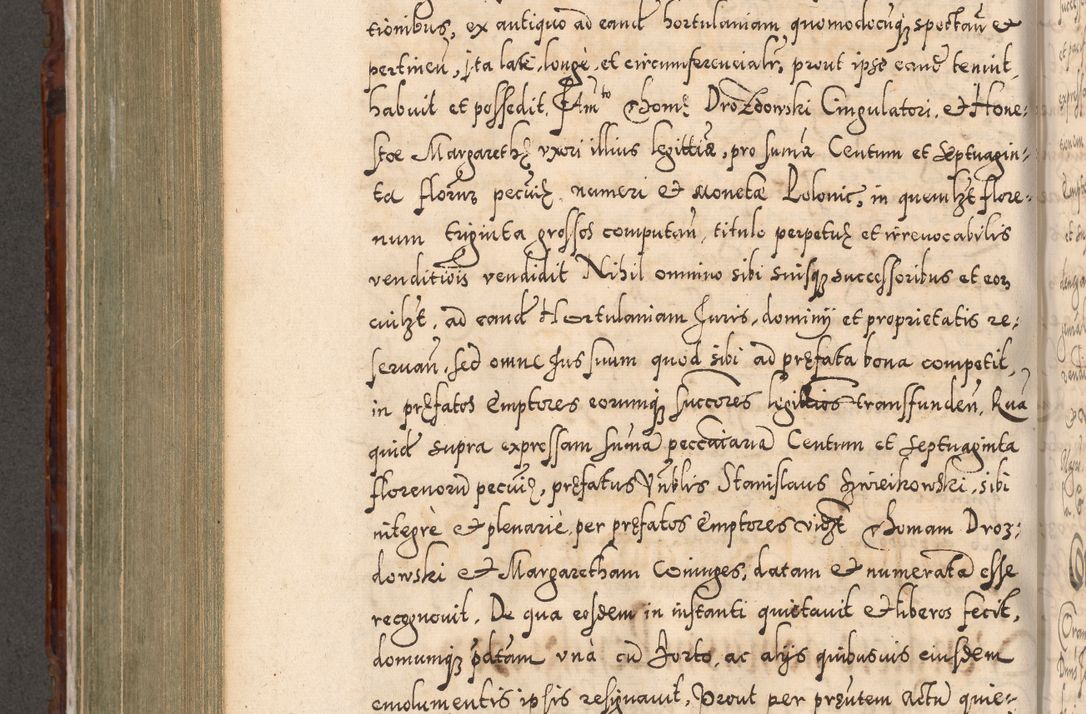 tionibus, ex antiquo ad eand hortulaniam quomodocuq spectan et
pertinen, ita late, longe, et circumferencialr, prout ipse eand tenuit,
habuit et possedit. Fam̄to Thomę Drozdowski Cingulatori, et Hone-
stæ Margarethę uxori illius legittimæ, pro sumā Centum et septuagin-
ta florenr pecuiæ, numeri et monetæ Polonic, in quemlzt flore-
num triginta grossos computan, titulo perpetuę et irrevocabilis
venditiois vendidit Nihil omnino sibi suisq successoribus et eor
cuilzt, ad eand Hortulaniam Juris, dominij et proprietatis re-
servan, sed omne Jus suum quod sibi ad pręfata bona competit,
in pręfatos Emptores eorumq succores legittios transfunden. Quā
quid supra expressam sumā peccuiariā Centum et septuaginta
florenorū pecuię, pręfatus Vnblis Stanislaus Zwieikowski, sibi
integrè et plenariè per pręfatos Emptores vidzt Thomam Droz-
dowski et Margaretham Coniuges, datam et numeratā esse
recognovit. De qua eosdem in instanti quietavit et liberos fecit,
domumq pdtam unà cū Horto, ac alijs quibusvis eiusdem
emolumentis ipsis resignavit, Prout per pręntem actū quie-